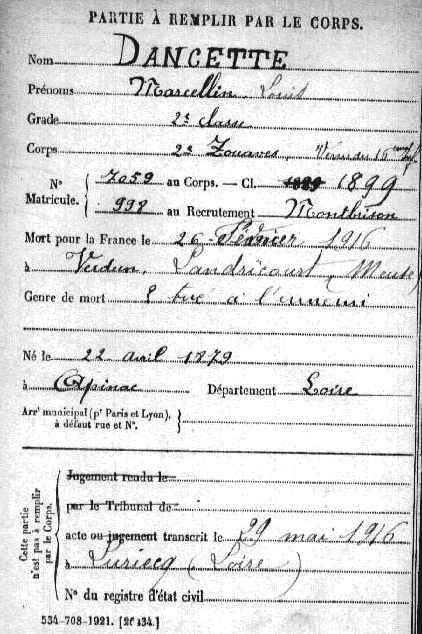 PARTIE À REMPLIR PAR LE CORPS.
Nom DANCETTE
Prénoms Marcellin Louis
Grade 2e classe
Corps 2e Zouaves, Venu du 16e
No Matricule. 7059 au Corps. — Cl. 1889 1899
998 au Recrutement Montbrison
Mort pour la France le 26 Février 1916
à Verdun, Landricourt (Meuse)
Genre de mort tué à l'ennemi
Né le 22 avril 1879
à Apinac Département Loire
Arrt municipal (pr Paris et Lyon), à défaut rue et No.
Cette partie n'est pas à remplir par le Corps.
Jugement rendu le
par le Tribunal de
acte ou jugement transcrit le 29 mai 1916
à Luriecq (Loire)
No du registre d'état civil
534-708-1921. [26434.]